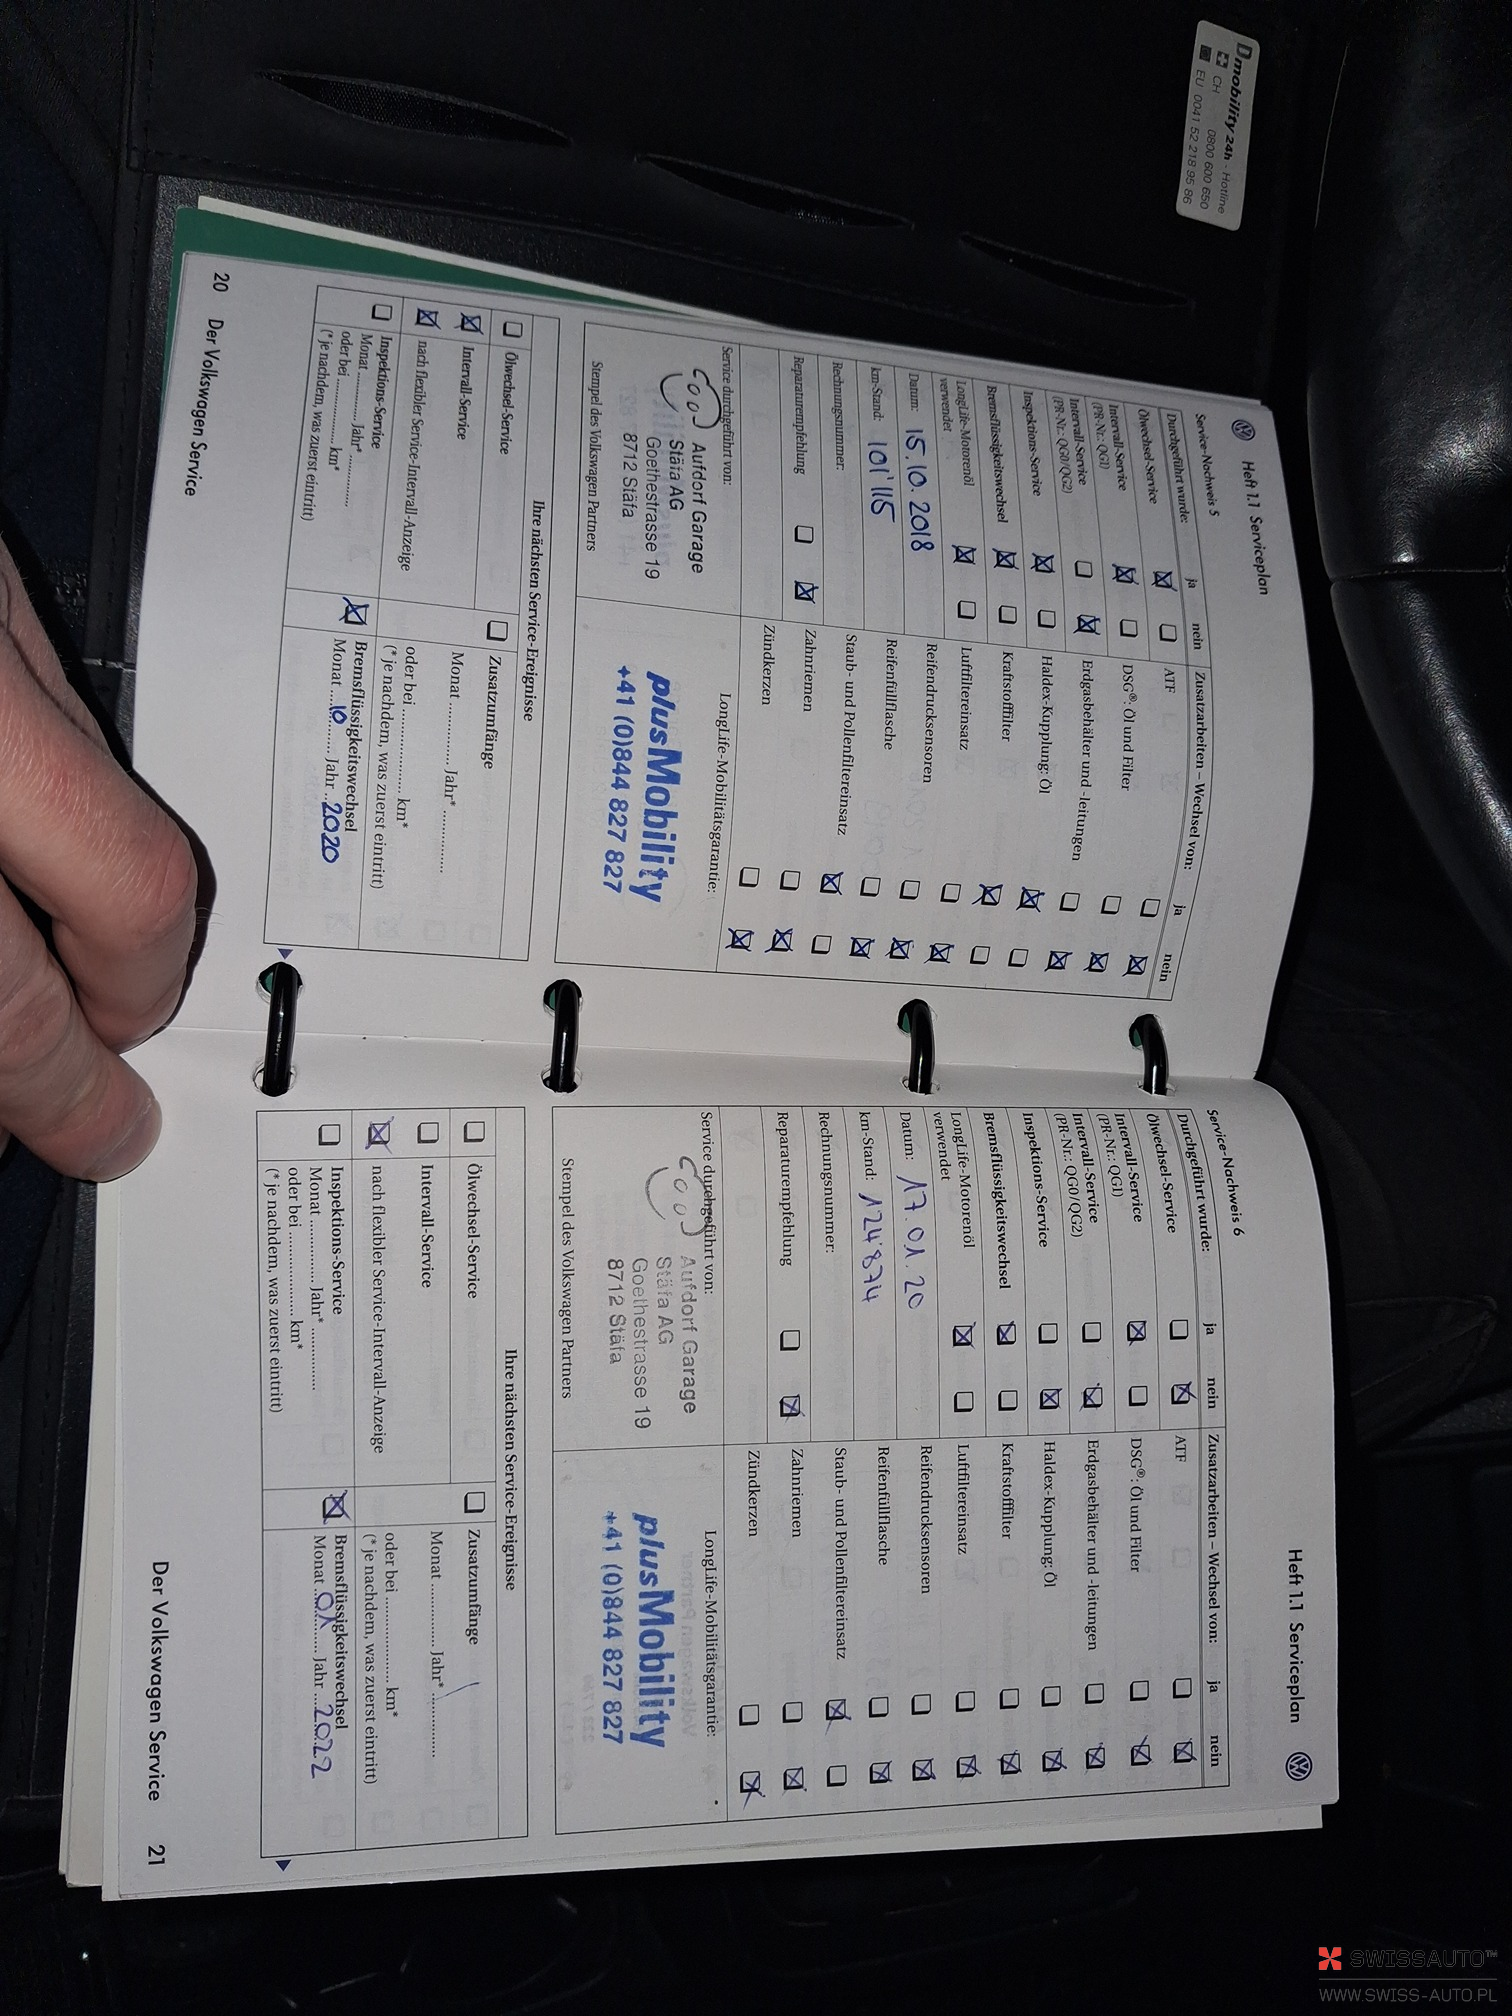 Dmobility 24h - Hotline
CH 0800 600 650
EU 0041 52 218 95 86
Heft 1.1 Serviceplan
Service-Nachweis 5
Durchgeführt wurde: ja nein
Ölwechsel-Service
Intervall-Service
(PR-Nr.: QG1)
Intervall-Service
(PR-Nr.: QG0/QG2)
Inspektions-Service
Bremsflüssigkeitswechsel
LongLife-Motorenöl
verwendet
Datum: 15.10.2018
km-Stand: 101'115
Rechnungsnummer:
Reparaturempfehlung
Zusatzarbeiten – Wechsel von: ja nein
ATF
DSG®: Öl und Filter
Erdgasbehälter und -leitungen
Haldex-Kupplung: Öl
Kraftstofffilter
Luftfiltereinsatz
Reifendrucksensoren
Reifenfüllflasche
Staub- und Pollenfiltereinsatz
Zahnriemen
Zündkerzen
Service durchgeführt von:
Aufdorf Garage
Stäfa AG
Goethestrasse 19
8712 Stäfa
Stempel des Volkswagen Partners
LongLife-Mobilitätsgarantie:
plusMobility
+41 (0)844 827 827
Ihre nächsten Service-Ereignisse
Ölwechsel-Service
Intervall-Service
nach flexibler Service-Intervall-Anzeige
Inspektions-Service
Monat .......... Jahr* ..........
oder bei .......... km*
(* je nachdem, was zuerst eintritt)
Zusatzumfänge
Monat .......... Jahr* ..........
oder bei .......... km*
(* je nachdem, was zuerst eintritt)
Bremsflüssigkeitswechsel
Monat 10 Jahr 2020
20 Der Volkswagen Service
Heft 1.1 Serviceplan
Service-Nachweis 6
Durchgeführt wurde: ja nein
Ölwechsel-Service
Intervall-Service
(PR-Nr.: QG1)
Intervall-Service
(PR-Nr.: QG0/QG2)
Inspektions-Service
Bremsflüssigkeitswechsel
LongLife-Motorenöl
verwendet
Datum: 17.01.20
km-Stand: 124'874
Rechnungsnummer:
Reparaturempfehlung
Zusatzarbeiten – Wechsel von: ja nein
ATF
DSG®: Öl und Filter
Erdgasbehälter und -leitungen
Haldex-Kupplung: Öl
Kraftstofffilter
Luftfiltereinsatz
Reifendrucksensoren
Reifenfüllflasche
Staub- und Pollenfiltereinsatz
Zahnriemen
Zündkerzen
Service durchgeführt von:
Aufdorf Garage
Stäfa AG
Goethestrasse 19
8712 Stäfa
Stempel des Volkswagen Partners
LongLife-Mobilitätsgarantie:
plusMobility
+41 (0)844 827 827
Ihre nächsten Service-Ereignisse
Ölwechsel-Service
Intervall-Service
nach flexibler Service-Intervall-Anzeige
Inspektions-Service
Monat .......... Jahr* ..........
oder bei .......... km*
(* je nachdem, was zuerst eintritt)
Zusatzumfänge
Monat .......... Jahr* ..........
oder bei .......... km*
(* je nachdem, was zuerst eintritt)
Bremsflüssigkeitswechsel
Monat 01 Jahr 2022
Der Volkswagen Service 21
SWISSAUTO™
WWW.SWISS-AUTO.PL